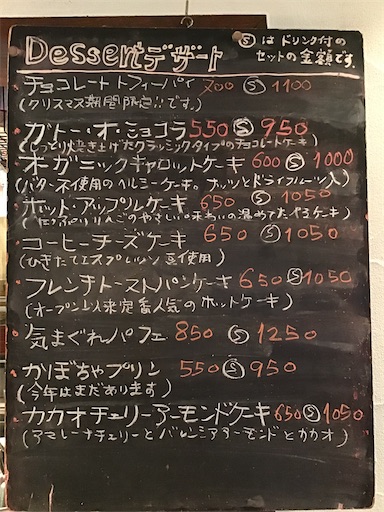 Dessertデザート
Ⓢはドリンク付の
セットの金額です。
・チョコレートトフィーパイ 700 Ⓢ 1100
(クリスマス期間限定!!です。)
・ガトー・オ・ショコラ 550 Ⓢ 950
(しっとり焼き上げたクラシックタイプのチョコレートケーキ)
・オーガニックキャロットケーキ 600 Ⓢ 1000
(バター不使用のヘルシーケーキ。ナッツとドライフルーツ入)
・ホット・アップルケーキ 650 Ⓢ 1050
りんごのやさしい味わいの温めてたべるケーキ)
・コーヒーチーズケーキ 650 Ⓢ 1050
(ひきたてエスプレッソ豆使用)
・フレンチトーストパンケーキ 650 Ⓢ 1050
(オープン以来定番人気のホットケーキ)
・気まぐれパフェ 850 Ⓢ 1250
・かぼちゃプリン 550 Ⓢ 950
(今年はまだあります)
・カカオチェリーアーモンドケーキ 650 Ⓢ 1050
(アマレーナチェリーとバレンシアアーモンドとカカオ)